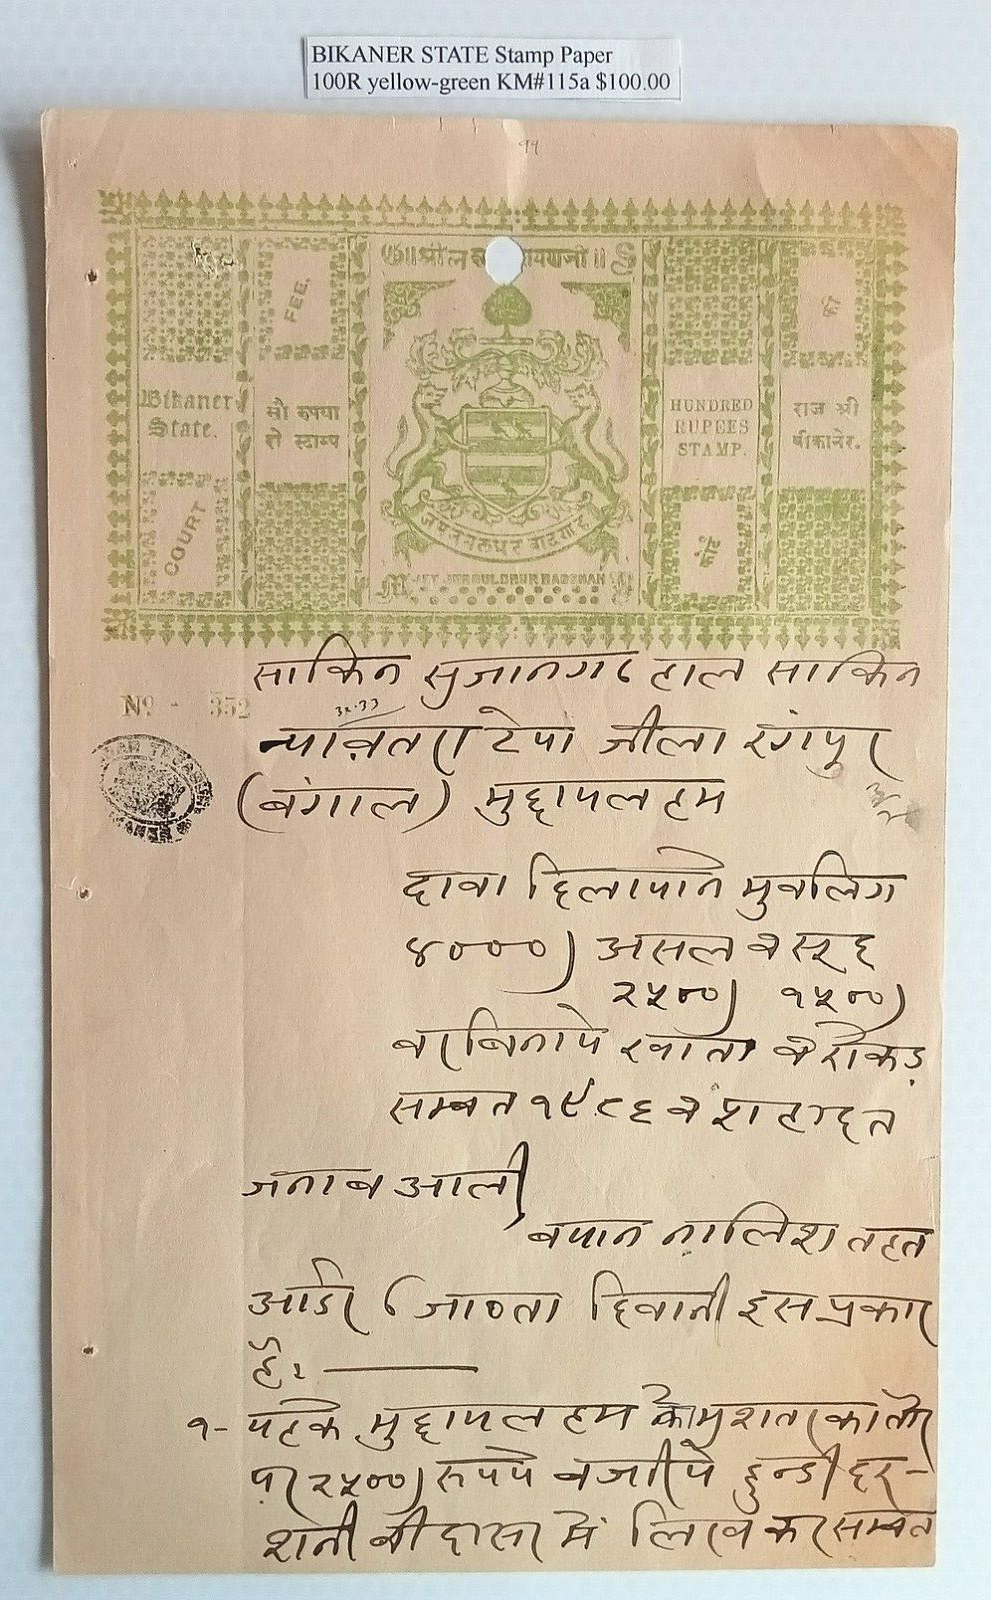 BIKANER STATE Stamp Paper
100R yellow-green KM#115a $100.00
११
FEE.
Bikaner
State.
सौ रुपया
रो स्टाम्प
COURT
HUNDRED
RUPEES
STAMP.
राज श्री
बीकानेर.
फ़ी
कोर्ट
BADSHAH
No - 352
साकिन सुजानगढ हाल साकिन
टेपा जीला रंगपुर
(बंगाल) मुद्दायलहम
दावा दिलापाने मुबलिग
४०००) असल व सूद
२५००) १५००)
बरबिनाये खाता व रोकड़
सम्बत १९८६ व शहादत
जनाब आली
बयान नालिश तहत
आर्डर ८ जाब्ता दिवानी इस प्रकार
है: —
१- यहके मुद्दायलहम
पर २५००) रुपये बजरीये हुन्डी दर-
शनी में लिख कर सम्बत